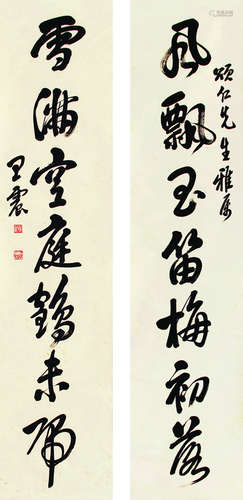 颂仁先生雅属
风飘玉笛梅初落
雪满空庭鹤未归
王震